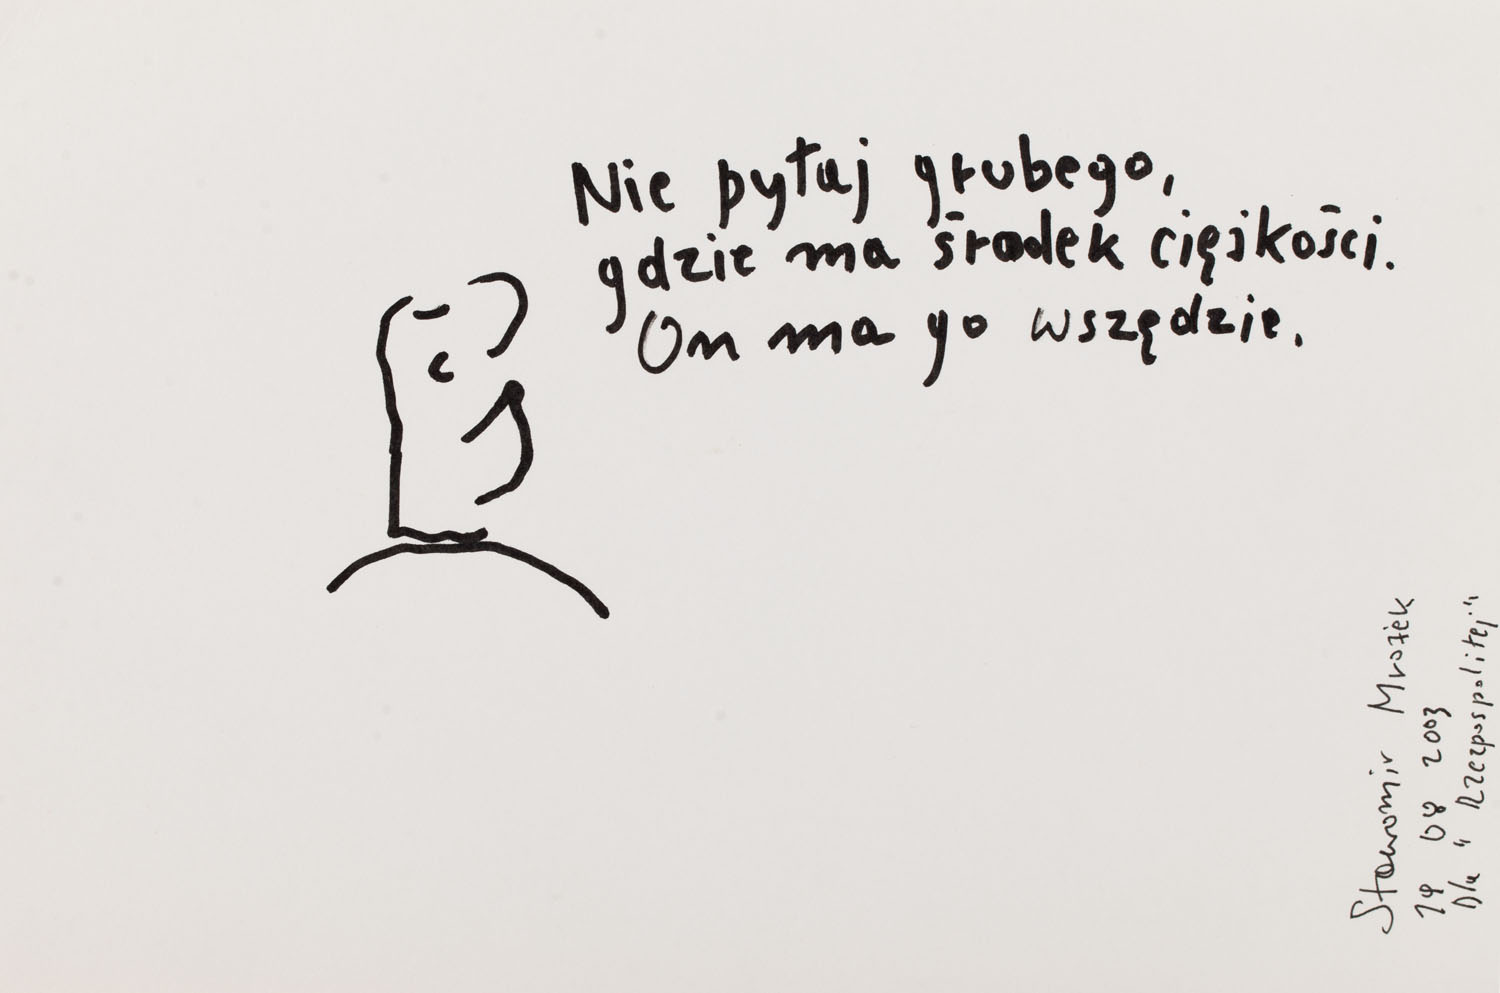 Nie pytaj grubego,
gdzie ma środek ciężkości.
On ma go wszędzie.
Sławomir Mrożek
14 08 2003
Dla "Rzeczpospolitej"